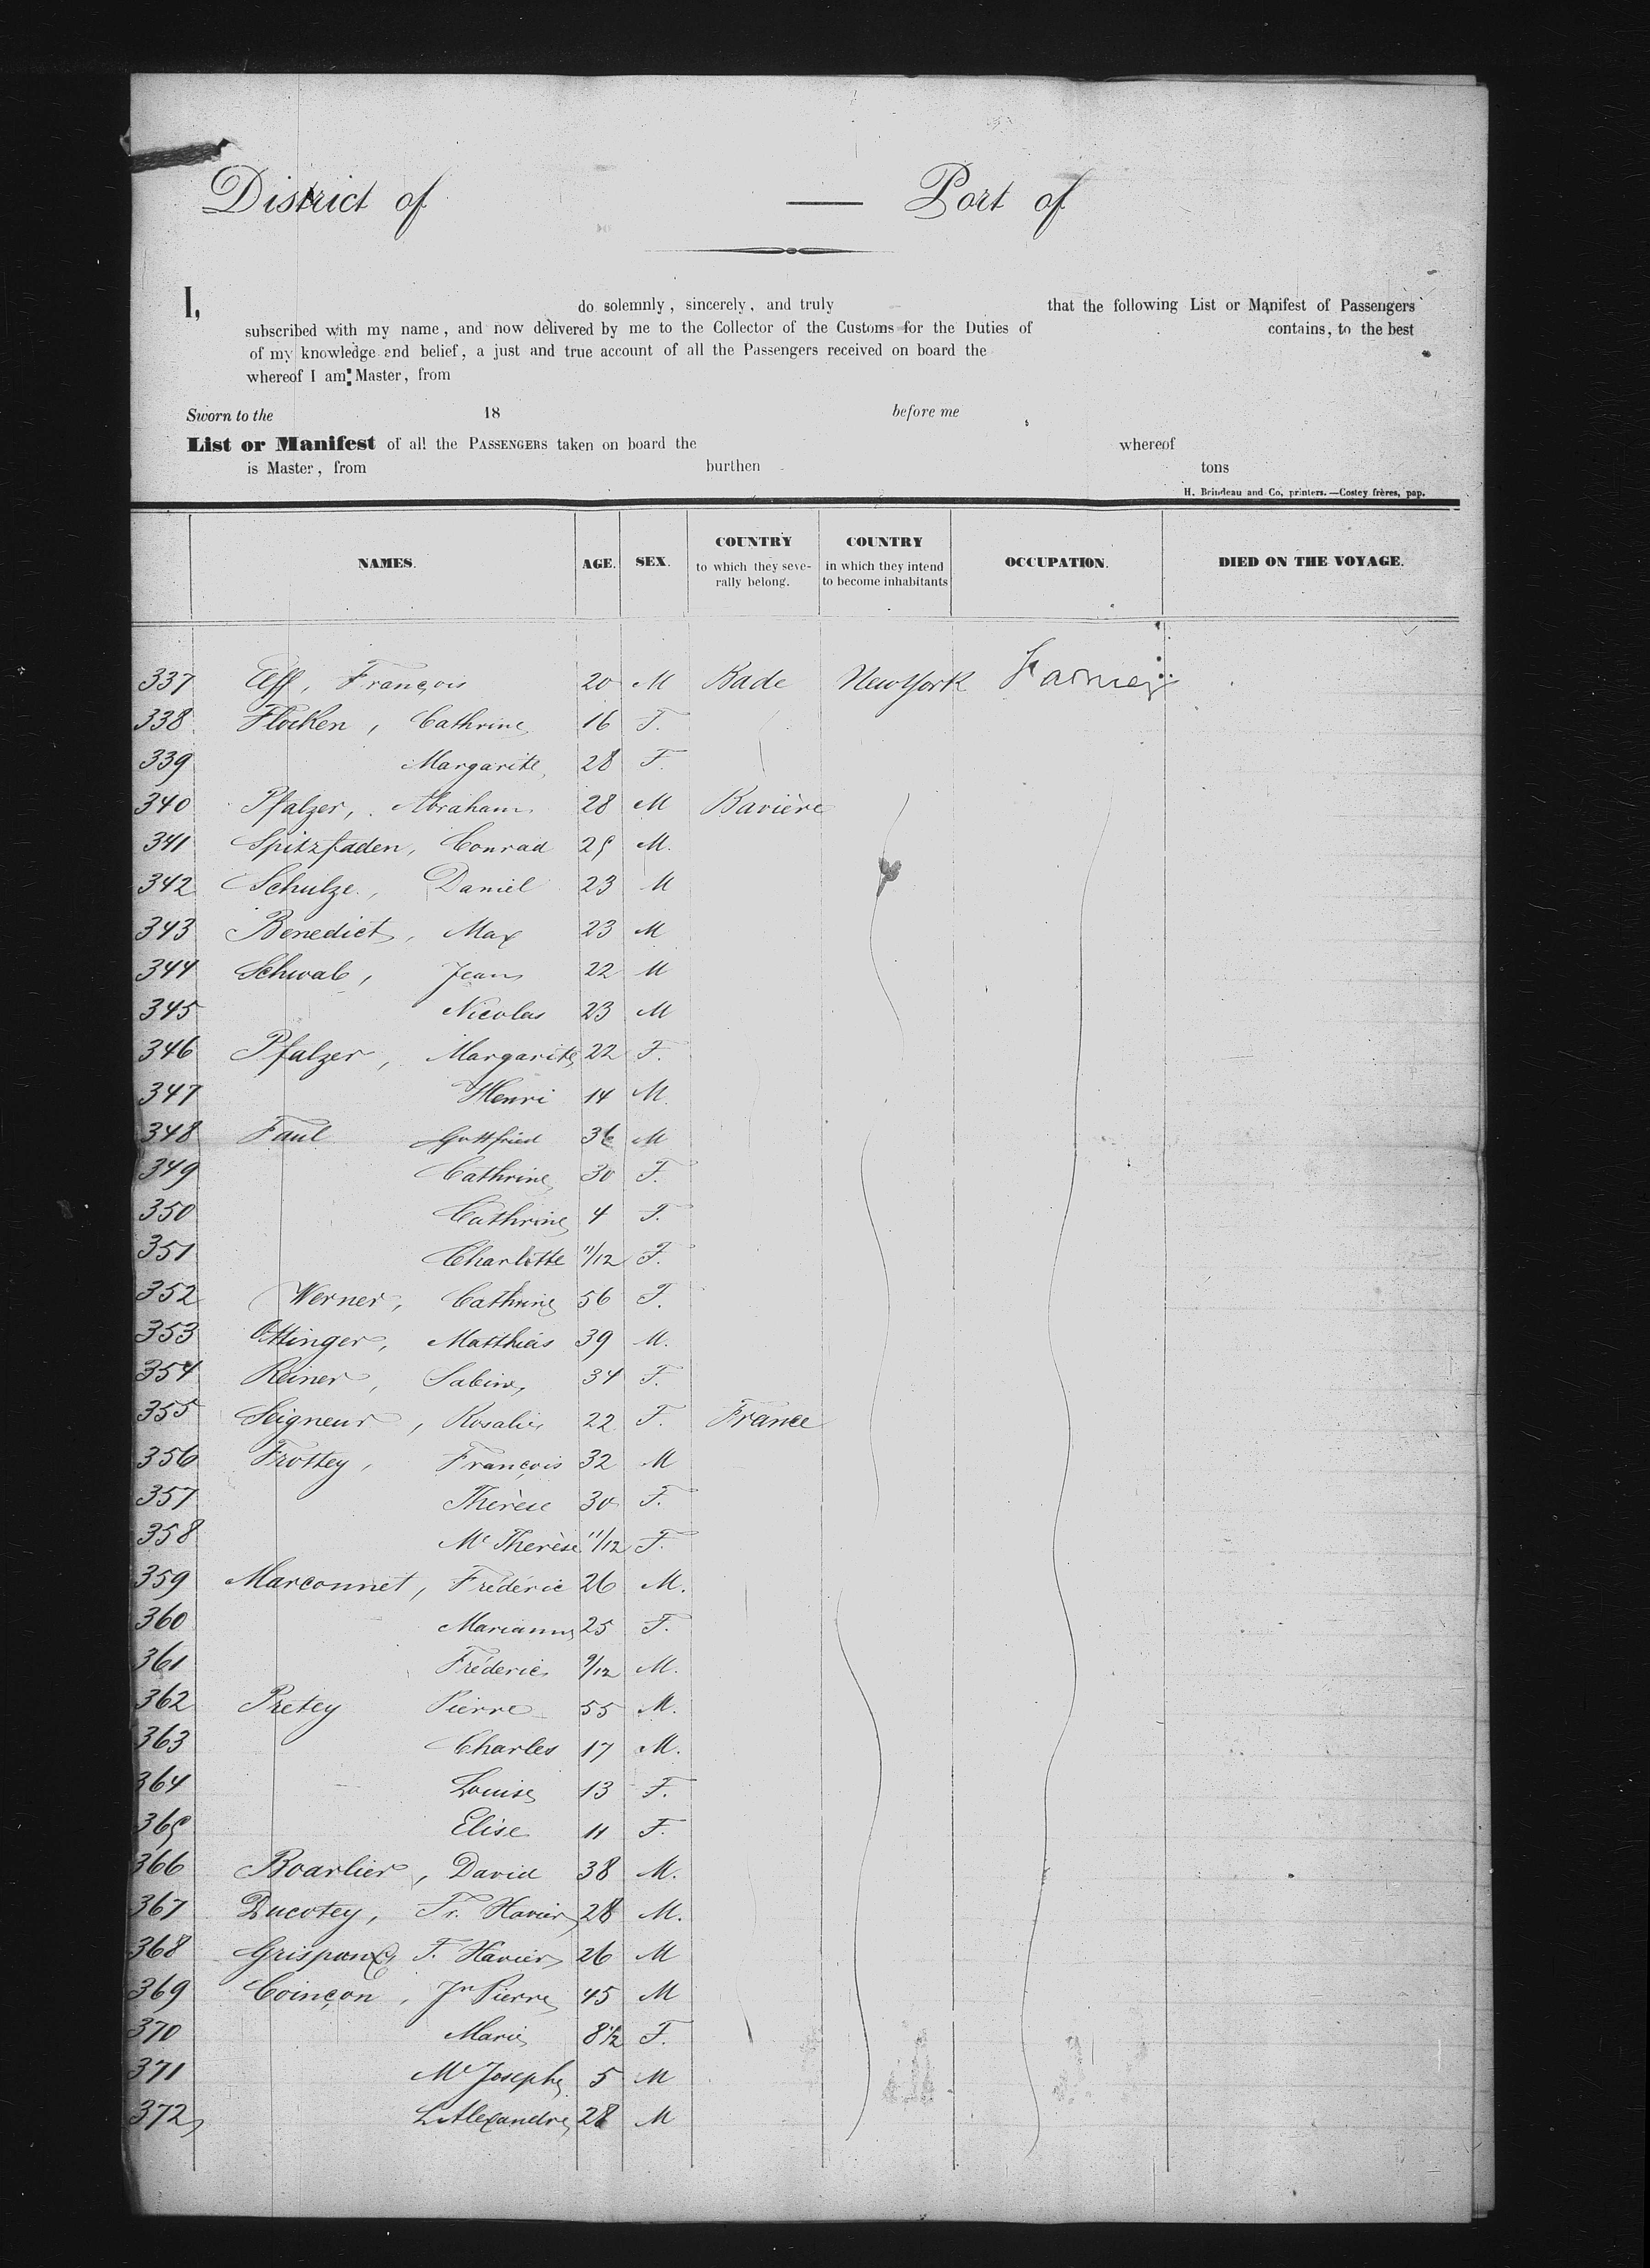 District of — Port of
I, do solemnly, sincerely, and truly that the following List or Manifest of Passengers
subscribed with my name, and now delivered by me to the Collector of the Customs for the Duties of contains, to the best
of my knowledge and belief, a just and true account of all the Passengers received on board the
whereof I am Master, from
Sworn to the 18 before me
List or Manifest of all the PASSENGERS taken on board the whereof
is Master, from burthen tons
H. Brindeau and Co, printers.—Costey frères, pap.
NAMES. AGE. SEX. COUNTRY to which they severally belong. COUNTRY in which they intend to become inhabitants OCCUPATION. DIED ON THE VOYAGE.
337 François 20 M Bade New York Farmer
338 Flocken, Cathrine 16 F.
339 Margarite 28 F.
340 Pfalzer, Abraham 28 M Bavière
341 Spitzfaden, Conrad 25 M.
342 Schulze, Daniel 23 M
343 Benedict, Max 23 M
344 Schwab, Jean 22 M
345 Nicolas 23 M
346 Pfalzer, Margarite 22 F.
347 Henri 14 M.
348 Faul Gottfried 36 M
349 Cathrine 30 F.
350 Cathrine 4 F.
351 Charlotte 11/12 F.
352 Werner, Cathrine 56 F.
353 Ottinger, Matthias 39 M.
354 Reiner, Sabine 34 F.
355 Seigneur, Rosalie 22 F. France
356 Frottey, François 32 M
357 Thérèse 30 F.
358 Me Thérèse 11/12 F.
359 Marconnet, Fréderic 26 M.
360 Marianne 25 F.
361 Fréderic 9/12 M.
362 Pretey Pierre 55 M.
363 Charles 17 M.
364 Louise 13 F.
365 Elise 11 F.
366 Boarlier, David 38 M.
367 Ducotey, Fr. Xavier 28 M.
368 F. Xavier 26 M
369 Coinçon, Jn Pierre 45 M
370 Marie 8 1/2 F.
371 Me Joseph 5 M
372 L. Alexandre 28 M